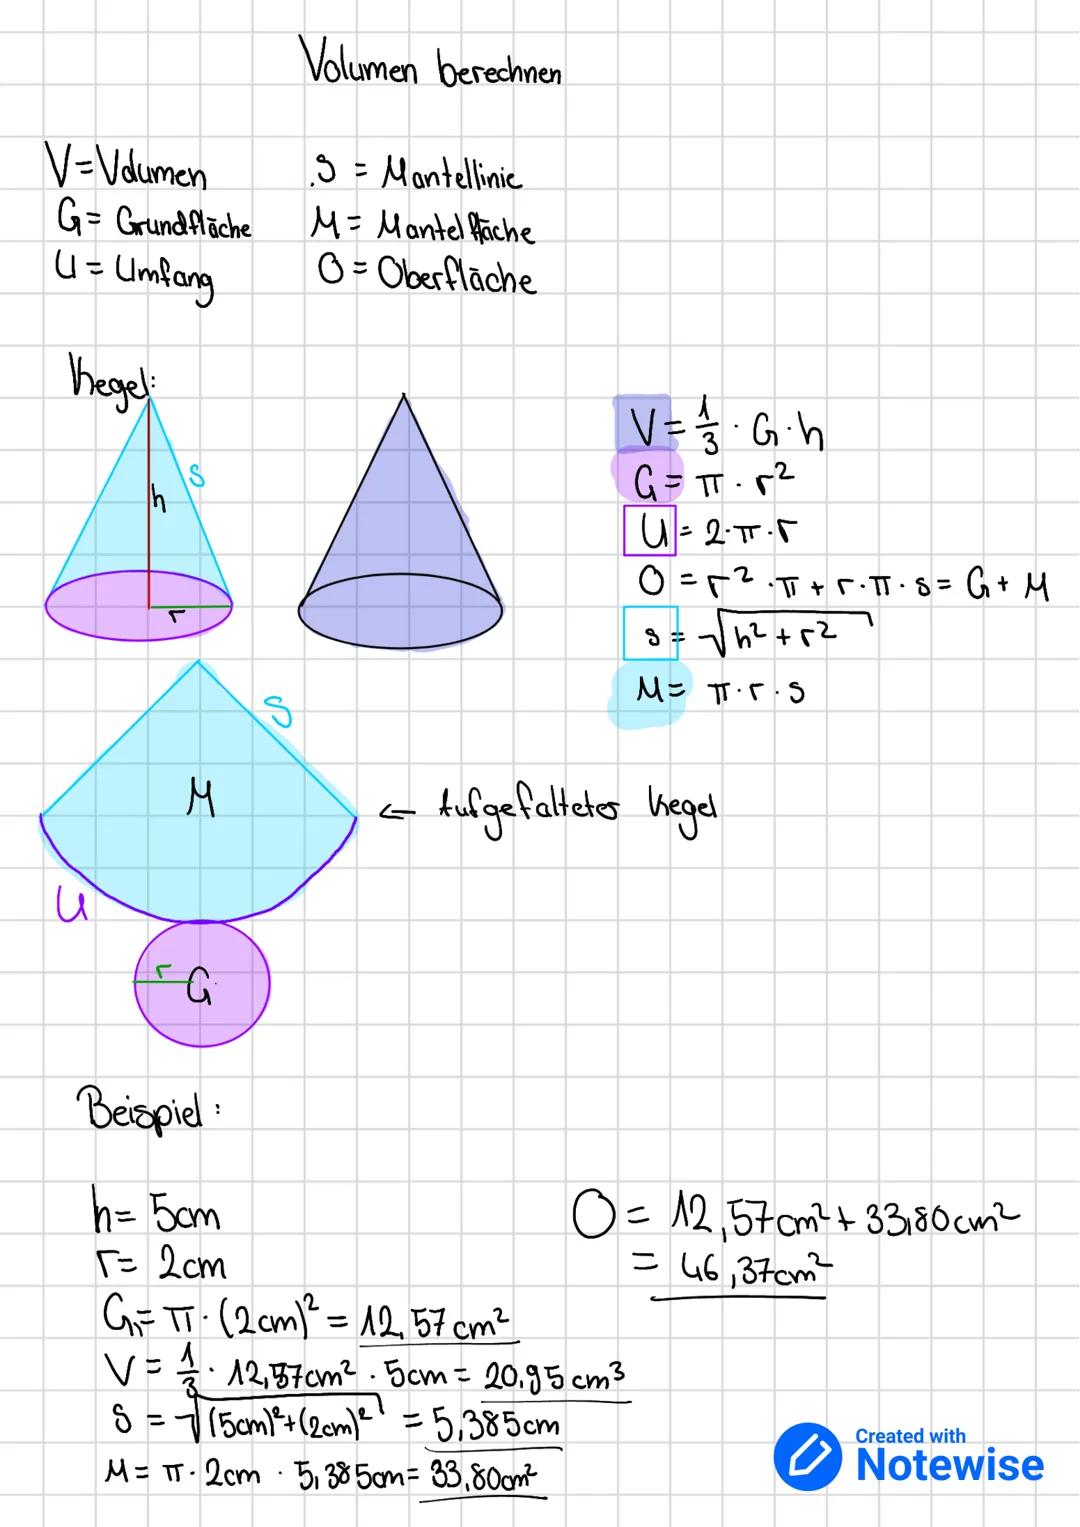 Volumen berechnen
V = Volumen
G = Grundfläche
U = Umfang
s = Mantellinie
M = Mantelfläche
O = Oberfläche
Kegel:
s
h
r
V = 1/3 · G · h
G = π · r²
U = 2 · π · r
O = r² · π + r · π · s = G + M
s = √(h² + r²)
M = π · r · s
s
M
← Aufgefalteter Kegel
U
r
G
Beispiel:
h = 5cm
r = 2cm
G = π · (2cm)² = 12,57cm²
V = 1/3 · 12,57cm² · 5cm = 20,95cm³
s = √((5cm)² + (2cm)²) = 5,385cm
M = π · 2cm · 5,385cm = 33,80cm²
O = 12,57cm² + 33,80cm²
= 46,37cm²
Created with
Notewise